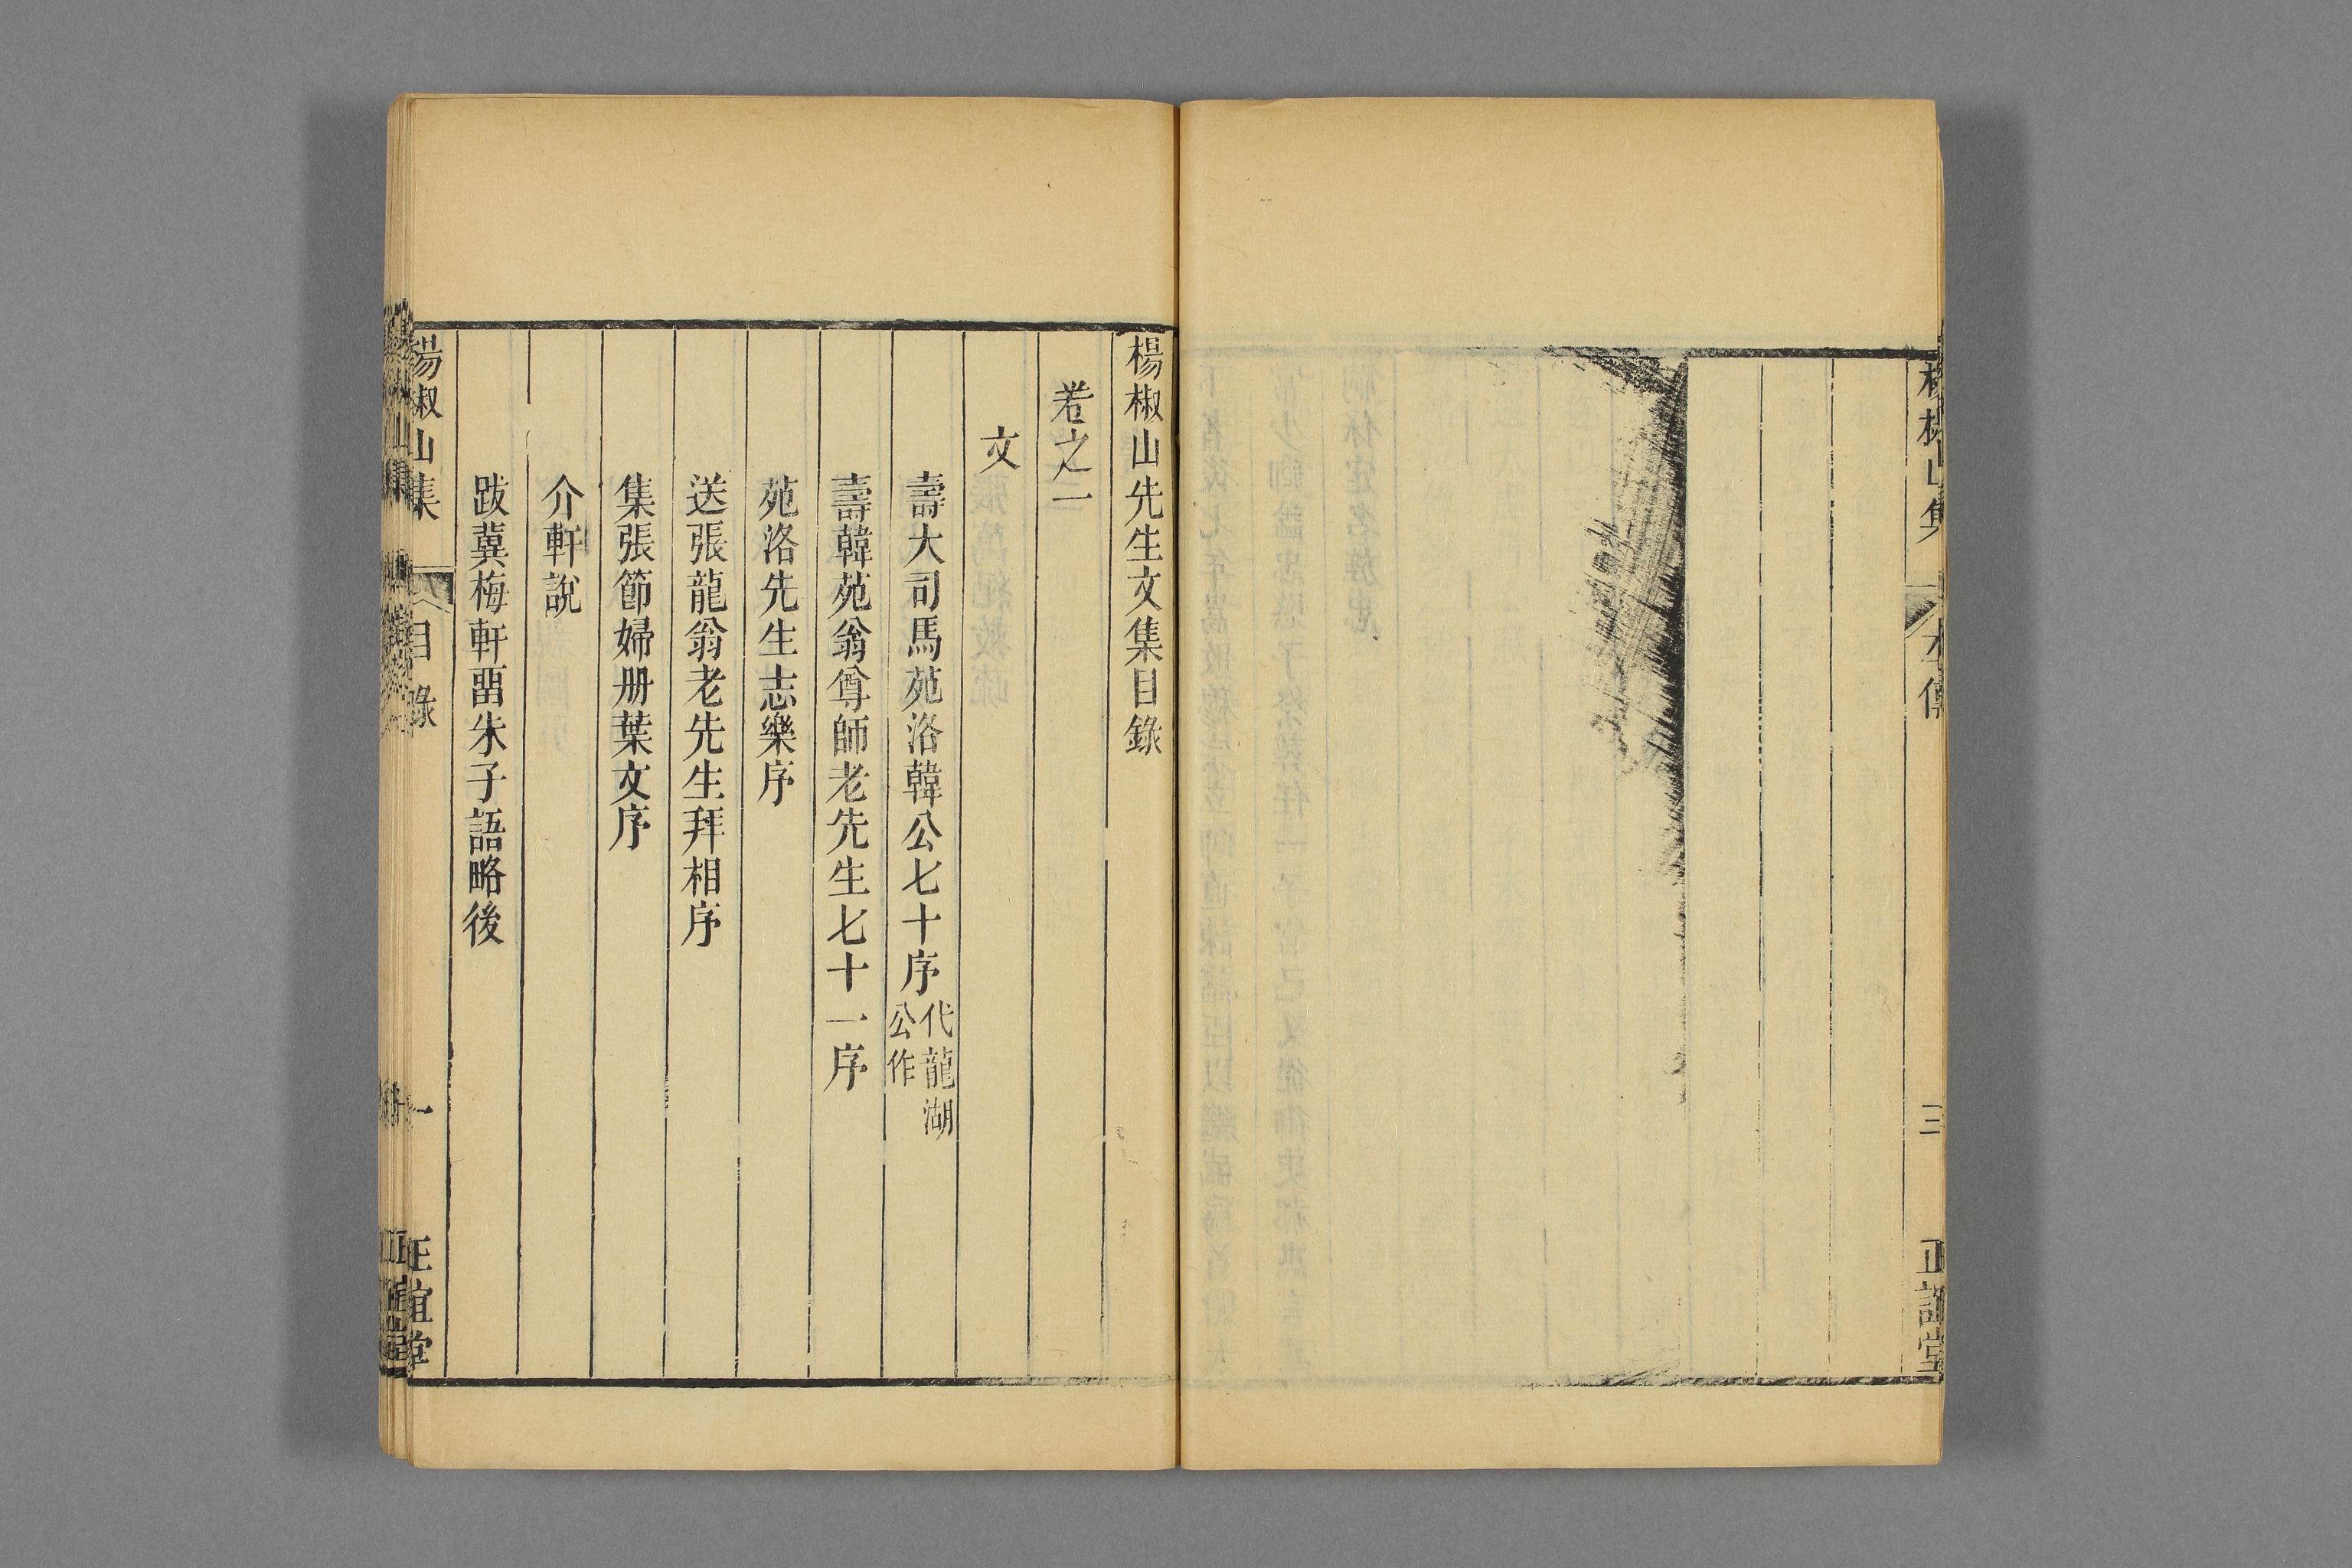 楊椒山集
本傳
三
正誼堂
楊椒山先生文集目錄
卷之一
文
壽大司馬苑洛韓公七十序代龍湖公作
壽韓苑翁尊師老先生七十一序
苑洛先生志樂序
送張龍翁老先生拜相序
集張節婦册葉文序
介軒說
跋冀梅軒畱朱子語略後
楊椒山集
目錄
一
正誼堂